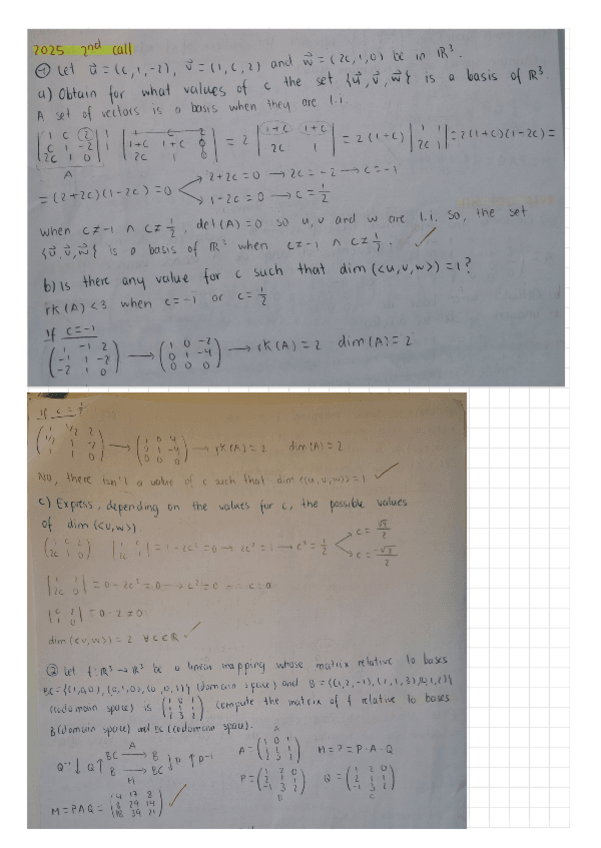 2025 2nd call
① Let u⃗ = (c, 1, -2), v⃗ = (1, c, 2) and w⃗ = (2c, 1, 0) be in ℝ³.
a) Obtain for what values of c the set {u⃗, v⃗, w⃗} is a basis of ℝ³.
A set of vectors is a basis when they are l.i.
|1 c 2; c 1 -2; 2c 1 0| = |1 c 2; 1+c 1+c 0; 2c 1 0| = 2 |1+c 1+c; 2c 1| = 2(1+c) |1 1; 2c 1| = 2(1+c)(1-2c) =
A
= (2+2c)(1-2c) = 0 → 2+2c = 0 → 2c = -2 → c = -1
→ 1-2c = 0 → c = 1/2
when c≠-1 ∧ c≠1/2, det(A)=0 so u, v and w are l.i. So, the set
{u⃗, v⃗, w⃗} is a basis of ℝ³ when c≠-1 ∧ c≠1/2. ✓
b) Is there any value for c such that dim(<u,v,w>)=1?
rk(A)<3 when c=-1 or c=1/2
If c=-1
(1 -1 2; -1 1 -2; -2 1 0) → (1 0 -2; 0 1 -4; 0 0 0) → rk(A)=2 dim(A)=2
If c=1/2
(1 1/2 2; 1/2 1 -2; 1 1 0) → (1 0 4; 0 1 -4; 0 0 0) → rk(A)=2 dim(A)=2
No, there isn't a value of c such that dim(<u,v,w>)=1 ✓
c) Express, depending on the values for c, the possible values
of dim(<v,w>).
(1 c 2; 2c 1 0) |1 c; 2c 1| = 1-2c²=0 → 2c²=1 → c²=1/2 → c=
c=
= 0 → c=0
|c 2; 1 0| = 0-2≠0
dim(<v,w>) = 2 ∀c∈ℝ ✓
② Let f:ℝ³→ℝ³ be a linear mapping whose matrix relative to bases
BC={(1,0,0), (0,1,0), (0,0,1)} (domain space) and B={(1,2,-1),(2,1,3),(0,1,2)}
(codomain space) is (1 0 1; 1 1 1; 2 3 2) compute the matrix of f relative to bases
B(domain space) and BC (codomain space).
A
Q⁻¹ ↓ Q ↑ BC → B ↓ P ↑ P⁻¹
B → BC
M
A = M=?=P·A·Q
P = (1 2 0; 2 1 1; -1 3 2) Q = (1 2 0; 2 1 1; -1 3 2)
B C
M=PAQ= ✓